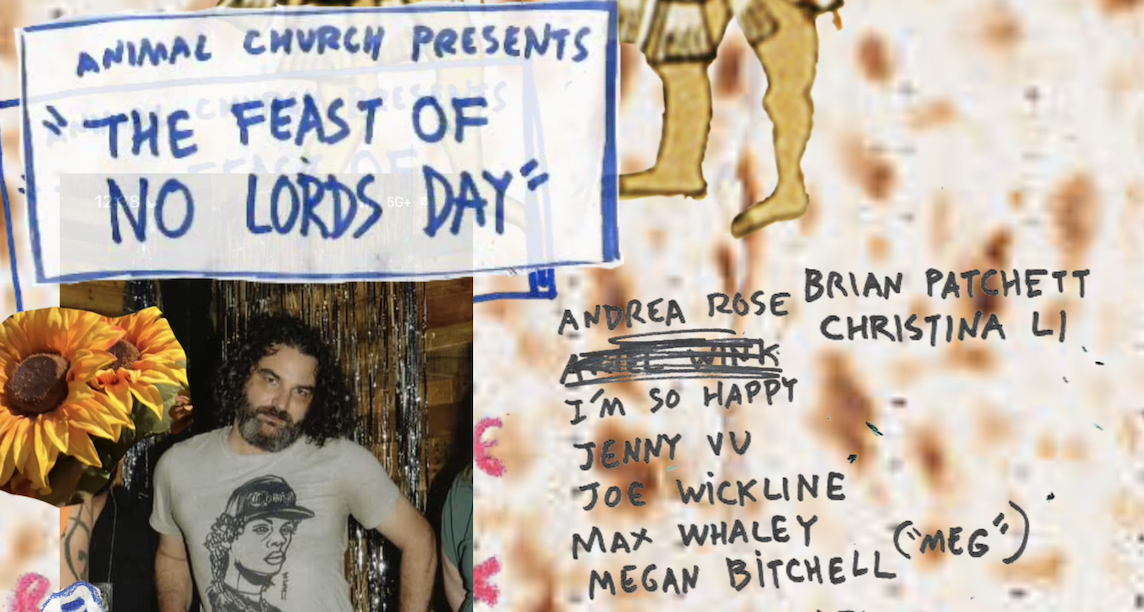 ANIMAL CHURCH PRESENTS
"THE FEAST OF
NO LORDS DAY"
BRIAN PATCHETT
CHRISTINA LI
ANDREA ROSE
WINK
I'M SO HAPPY
JENNY VU
JOE WICKLINE
MAX WHALEY
("MEG")
MEGAN BITCHELL